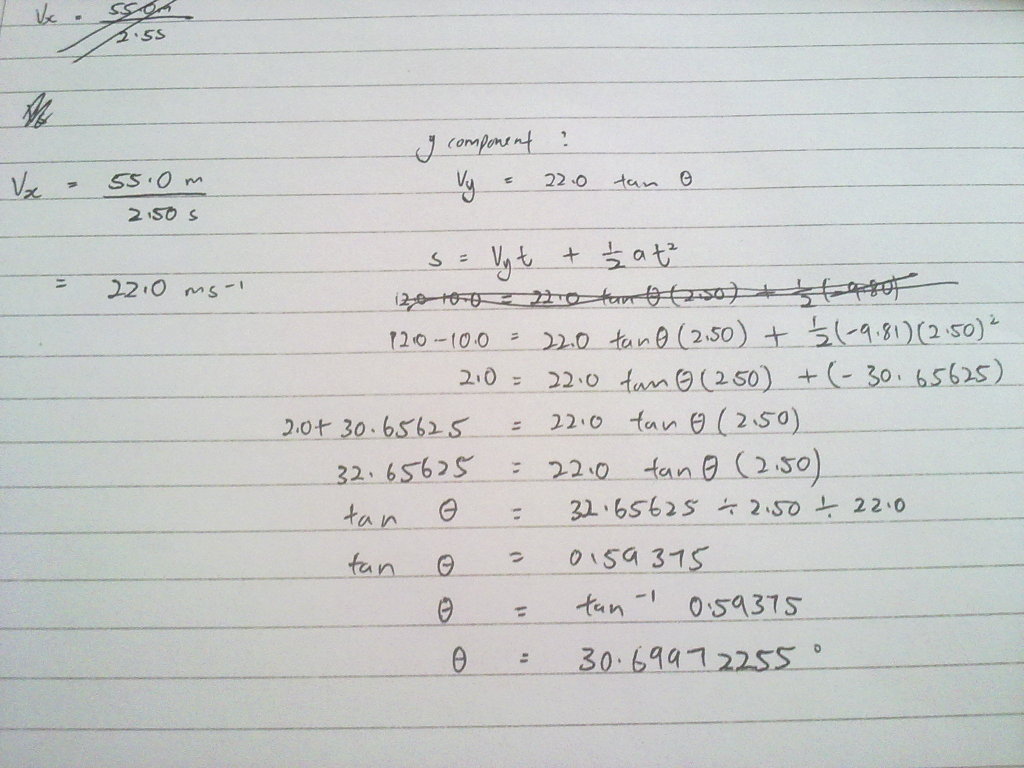 Vx = 55.0m
2.5s
Vx = 55.0 m
2.50 s
= 22.0 ms⁻¹
y component :
Vy = 22.0 tan θ
s = Vyt + ½ at²
12.0-10.0 = 22.0 tan θ (2.50) + ½ (-9.80)
12.0-10.0 = 22.0 tan θ (2.50) + ½ (-9.81)(2.50)²
2.0 = 22.0 tan θ (2.50) + (- 30.65625)
2.0 + 30.65625 = 22.0 tan θ (2.50)
32.65625 = 22.0 tan θ (2.50)
tan θ = 32.65625 ÷ 2.50 ÷ 22.0
tan θ = 0.59375
θ = tan⁻¹ 0.59375
θ = 30.69972255°